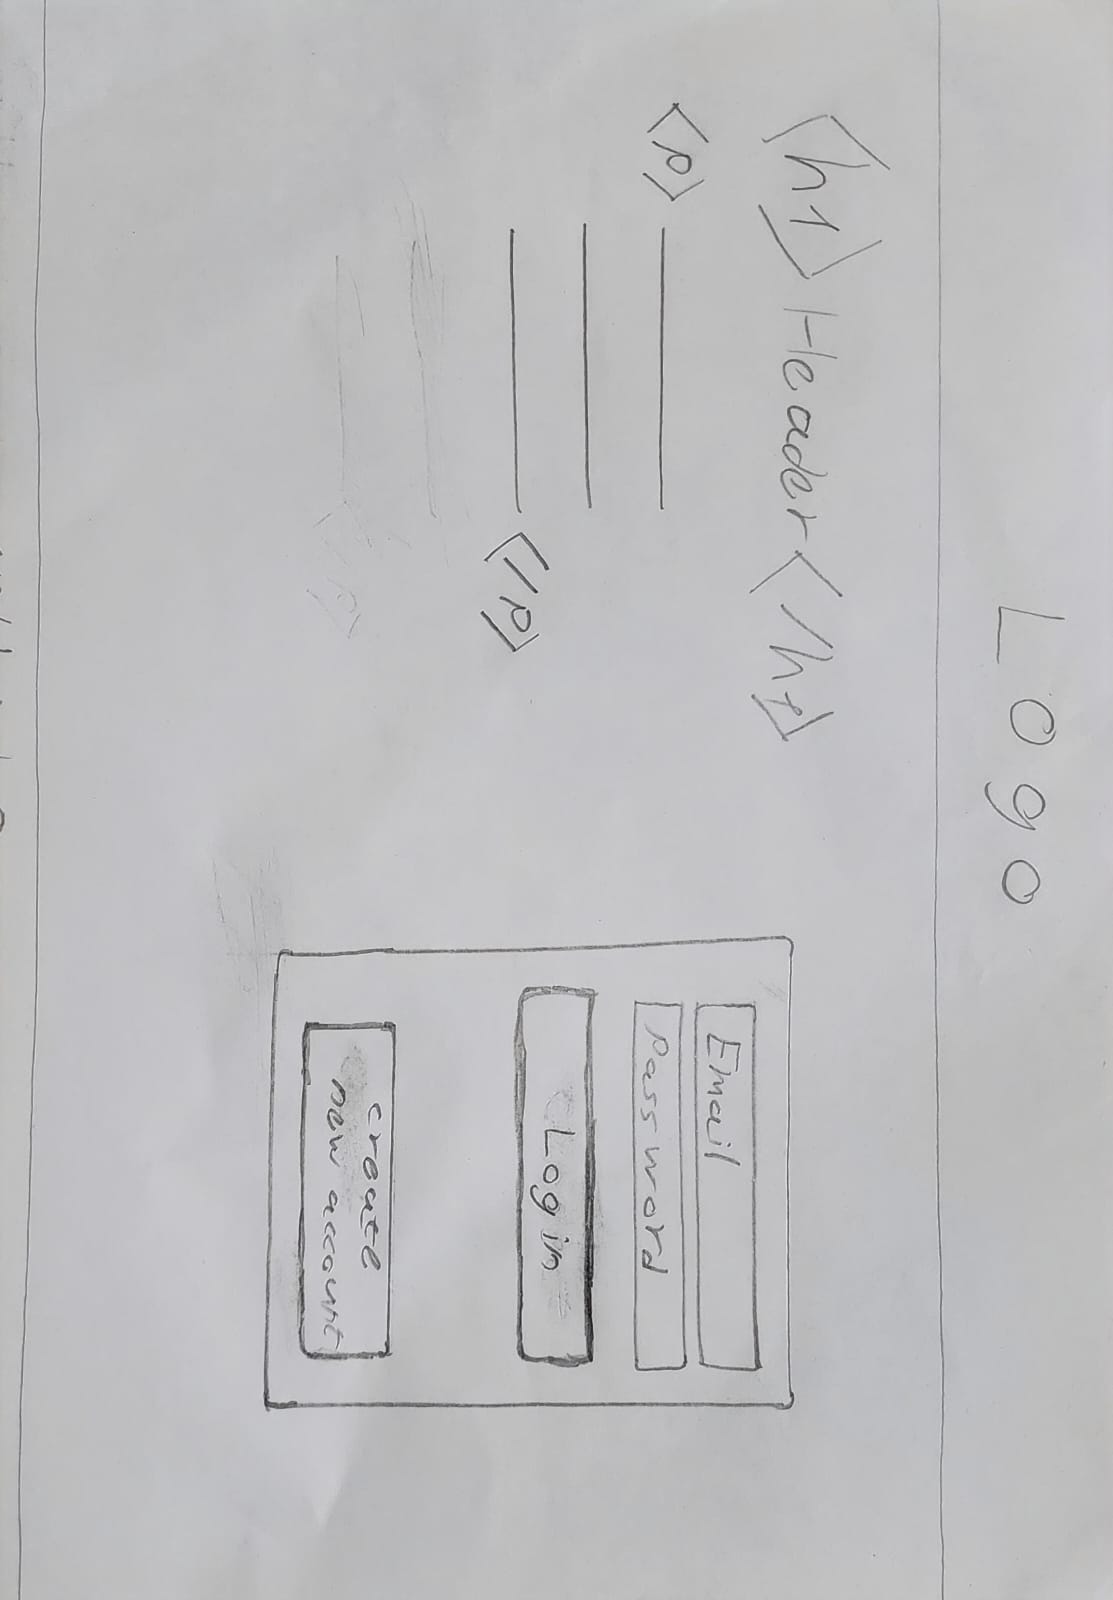 Logo
<h1> Header </h1>
<p>
</p>
Email
Password
Log in
create
new account